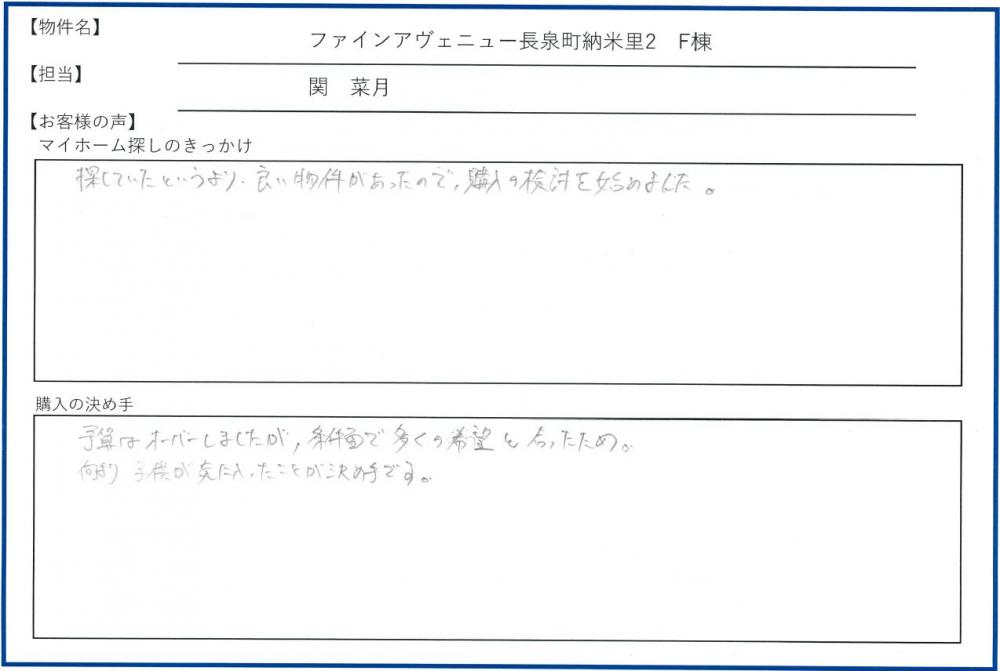 【物件名】
ファインアヴェニュー長泉町納米里2 F棟
【担当】
関 菜月
【お客様の声】
マイホーム探しのきっかけ
探していたというより、良い物件があったので、購入の検討を始めました。
購入の決め手
予算はオーバーしましたが、条件面で多くの希望と合ったため。
何より子供が気に入ったことが決め手です。